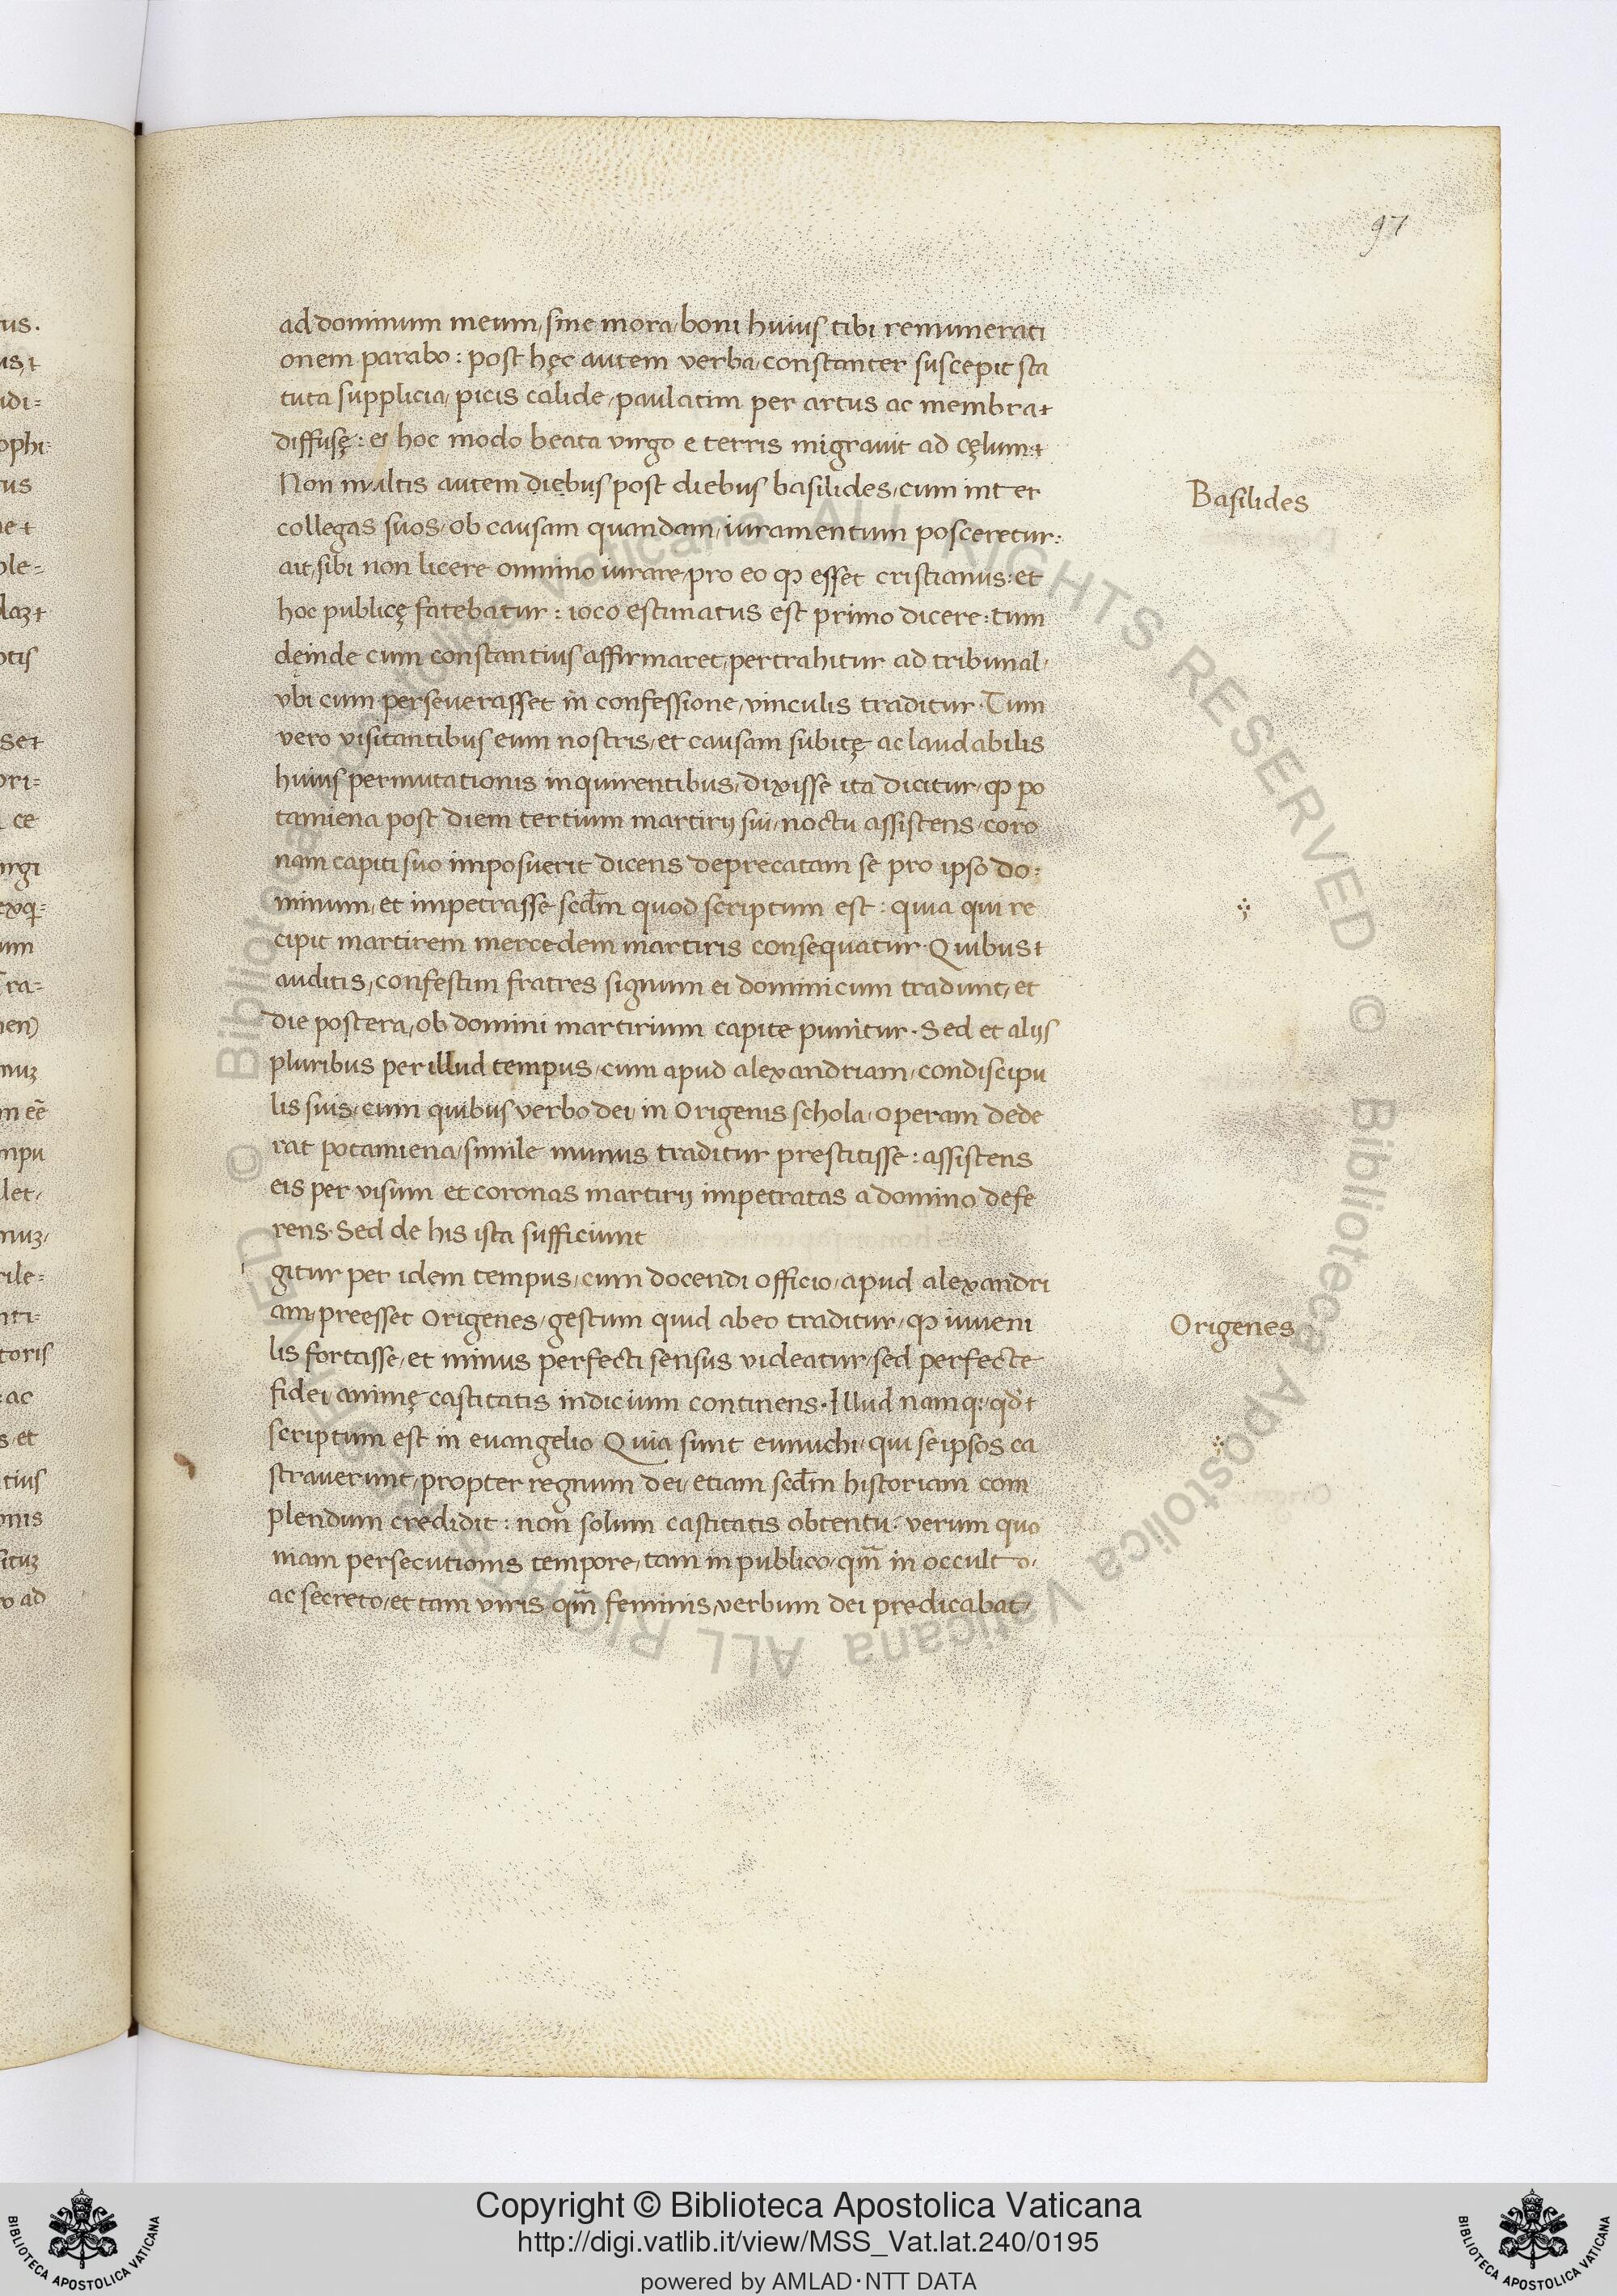 97
ad dominum meum, sine mora, boni huius tibi remunerati
onem parabo: post hęc autem verba, constanter suscepit sta
tuta supplicia, picis calide, paulatim per artus ac membra
diffusę: et hoc modo beata virgo e terris migravit ad cęlum.
Non multis autem diebus post diebus basilides, cum inter
collegas suos, ob causam quandam, iuramentum posceretur:
ait, sibi non licere omnino iurare, pro eo ꝙ esset cristianus: et
hoc publicę fatebatur: ioco estimatus est primo dicere: tum
deinde cum constantius affirmaret, pertrahitur ad tribunal,
vbi cum perseverasset in confessione, vinculis traditur. Tum
vero visitantibus eum nostris, et causam subitę ac laudabilis
huius permutationis inquirentibus, dixisse ita dicitur, ꝙ po
tamiena post diem tertium martirij sui, noctu assistens, coro
nam capiti suo imposuerit dicens deprecatam se pro ipso do=
minum, et impetrasse scdm̄ quod scriptum est: quia qui re
cipit martirem mercedem martiris consequatur. Quibus
auditis, confestim fratres signum ei dominicum tradunt, et
die postera, ob domini martirium capite punitur. Sed et alijs
pluribus per illud tempus, cum apud alexandriam, condiscipu
lis suis, cum quibus verbo dei, in Origenis schola, operam dede
rat potamiena, simile munus traditur prestitisse: assistens
eis per visum et coronas martirij impetratas a domino defe
rens. Sed de his ista sufficiunt
gitur per idem tempus, cum docendi officio, apud alexandri
am, preesset Origenes, gestum quid ab eo traditur, ꝙ iuveni
lis fortasse, et minus perfecti sensus videatur, sed perfecte
fidei animę castitatis indicium continens. Illud namq:, qd̓
scriptum est in evangelio Quia sunt eunuchi, qui seipsos ca
straverunt, propter regnum dei, etiam scdm̄ historiam com
plendum credidit: non solum castitatis obtentu, verum quo
niam persecutionis tempore, tam in publico, qm̄ in occulto,
ac secreto, et tam viris qm̄ feminis, verbum dei predicabat,
Basilides
Origenes
Copyright © Biblioteca Apostolica Vaticana
http://digi.vatlib.it/view/MSS_Vat.lat.240/0195
powered by AMLAD·NTT DATA
BIBLIOTECA APOSTOLICA VATICANA
BIBLIOTECA APOSTOLICA VATICANA
© Biblioteca Apostolica Vaticana ALL RIGHTS RESERVED
© Biblioteca Apostolica Vaticana ALL RIGHTS RESERVED